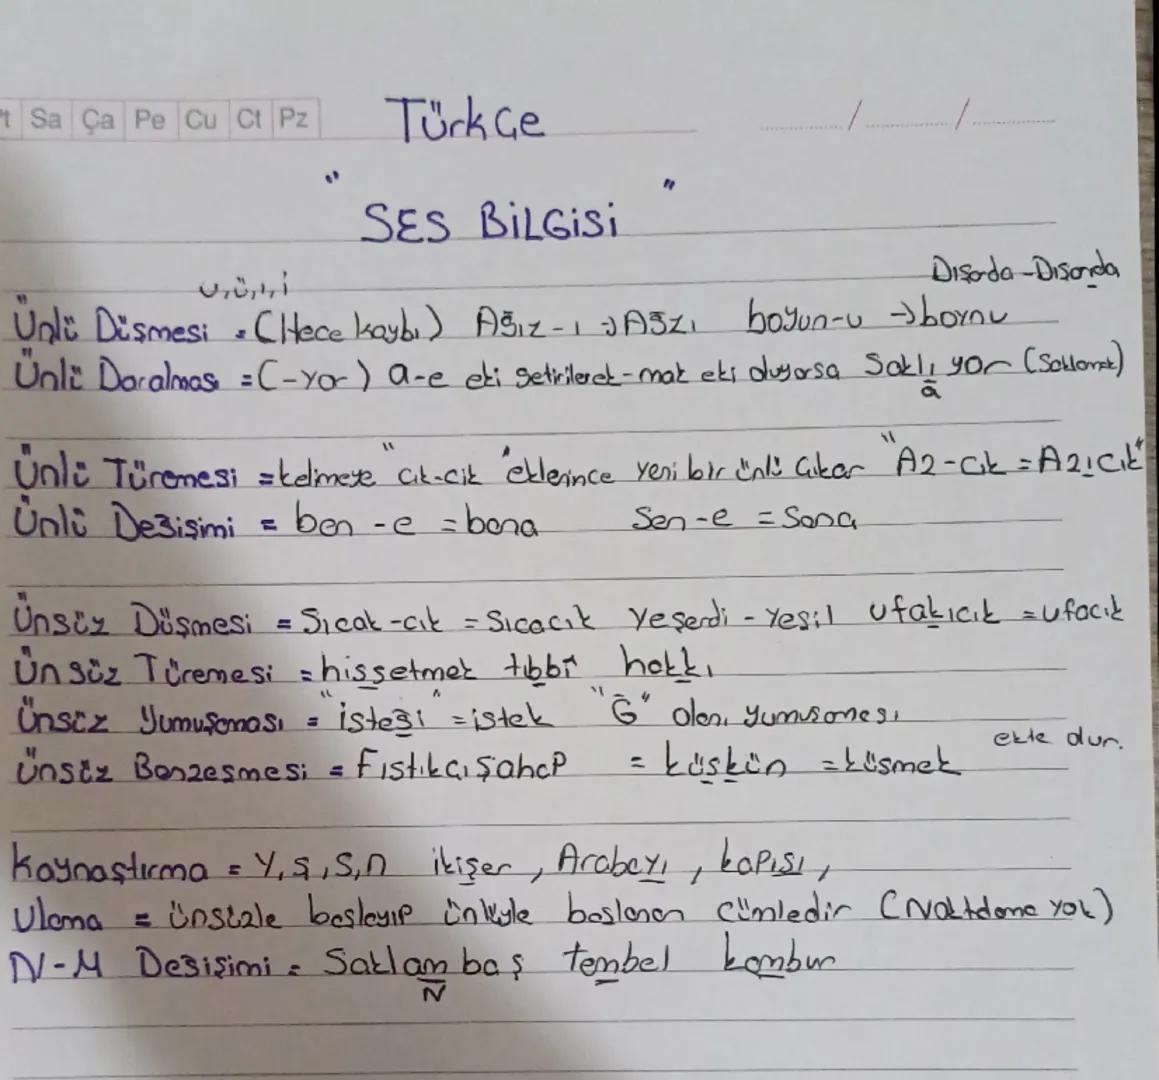 Sa Ça Pe Cu Ct Pz
Türkçe
" SES BİLGİSİ "
Dışarda-Dısarıda
u,ü,ı,i
Ünlü Düşmesi = (Hece kaybı) Ağız-ı → Ağzı boyun-u → boynu
Ünlü Daralması = (-yor) a-e eki getirilerek -mak eki oluyorsa Saklı yor (Saklamak)
a
Ünlü Türemesi = kelimeye "cık-cik" eklerince yeni bir ünlü çıkar "Az-cık = Azıcık"
Ünlü Değişimi = ben -e = bana Sen-e = Sana
Ünsüz Düşmesi = Sıcak-cık = Sıcacık Yeşerdi - Yeşil ufakıcık = ufacık
Ünsüz Türemesi = hissetmek tıbbî hakkı
Ünsüz Yumuşaması = "isteği" = istek "Ğ" olanı yumusamesı
ekte dur.
Ünsüz Benzeşmesi = Fıstıkçı Şahap = küskün = küsmek
Kaynaştırma = Y,ş,S,n ikişer, Arabayı, kapısı,
Ulama = ünsüzle başlayıp ünlüyle başlanan cümledir (Noktalama yok)
N-M Değişimi = Saklambaş tembel kambur
N